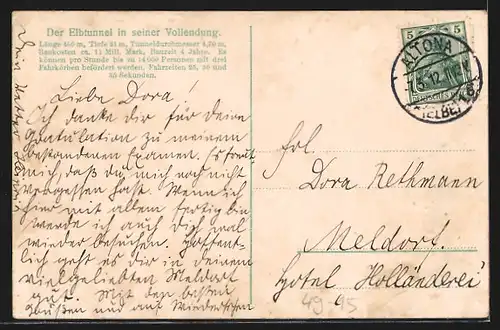 Der Elbtunnel in seiner Vollendung.
Länge 450 m, Tiefe 21 m, Tunneldurchmesser 4,70 m,
Baukosten ca. 11 Mill. Mark, Bauzeit 4 Jahre. Es
können pro Stunde bis zu 14000 Personen mit drei
Fahrkörben befördert werden. Fahrzeiten 25, 30 und
Sekunden.
5 5
ALTONA
12
(ELBE)
Liebe Dora!
Ich danke dir für deine
Gratulation zu meinem
bestandenen Examen. Es freut
mich, daß du mich noch nicht
vergessen hast. Wenn ich
hier mit allem fertig bin
werde ich auch dich mal
wieder besuchen. Hoffent-
lich geht es dir in deinem
vielgeliebten Meldorf
gut. Mit den besten
Grüßen und auf Wiedersehen
Dein Vetter
Frl.
Dora Rethmann
Meldorf.
Hotel Holländerei
49 45